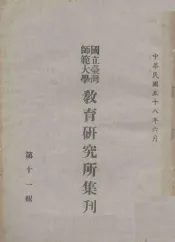 中華民國五十八年六月
國立臺灣
師範大學
教育研究所集刊
第十一輯